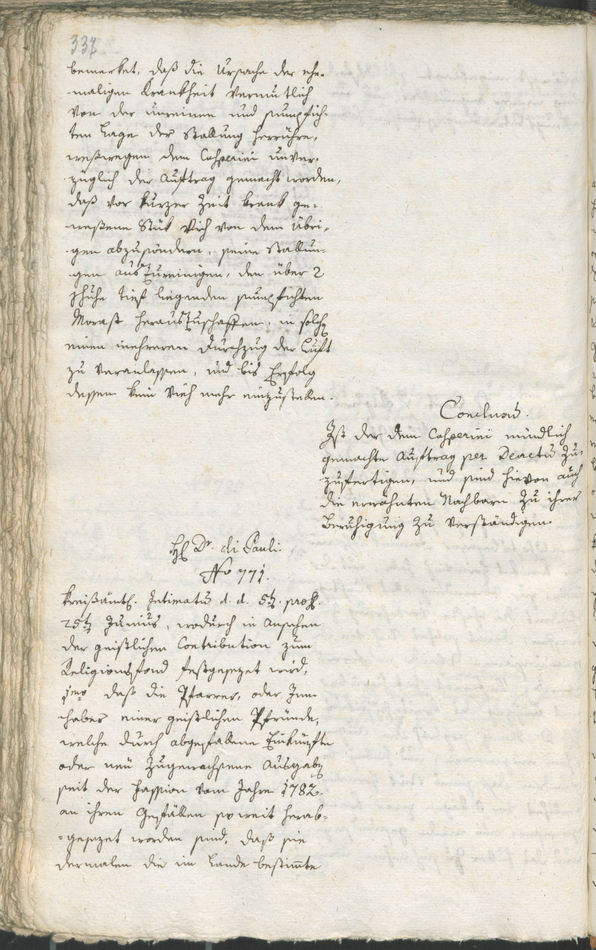 337
bemerket, daß die Ursache der ehe-
maligen Krankheit vermuthlich
von der unreinen und sumpfich-
ten Lage der Stallung herrühre,
weßwegen dem Casperini unver-
züglich der Auftrag gemacht worden,
daß vor kurzer Zeit krank ge-
weßene Stük Vieh von dem übri-
gen abzusöndern, seine Stallun-
gen auszureinigen, den über 2
Schuhe tief liegenden sumpfichten
Morast herauszuschaffen, in solche
einen mehreren Durchzug der Luft
zu veranlassen, und bis Erfolg
dessen kein Vieh mehr einzustellen.
Conclusum.
Ist der dem Casperini mündlich
gemachte Auftrag per Decretum zu-
zufertigen, und sind hievon auch
die erwähnten Nachbarn zu ihrer
Beruhigung zu verständigen.
H Dr. di Pauli.
No 771.
Kreißämtl. Intimatum d. d. 5t. pras.
25t Junius, wodurch in Ansehen
der geistlichen Contribution zum
Religionsfond festgesezt wird,
1mo daß die Pfarrer, oder Inn-
haber einer geistlichen Pfründe,
welche durch abgefallene Einkünfte
oder neü zugewachsene Ausgaben
seit der Fassion vom Jahre 1782.
an ihren Gefällen so weit herab-
gesezet worden sind, daß sie
dermalen die im Lande bestimte